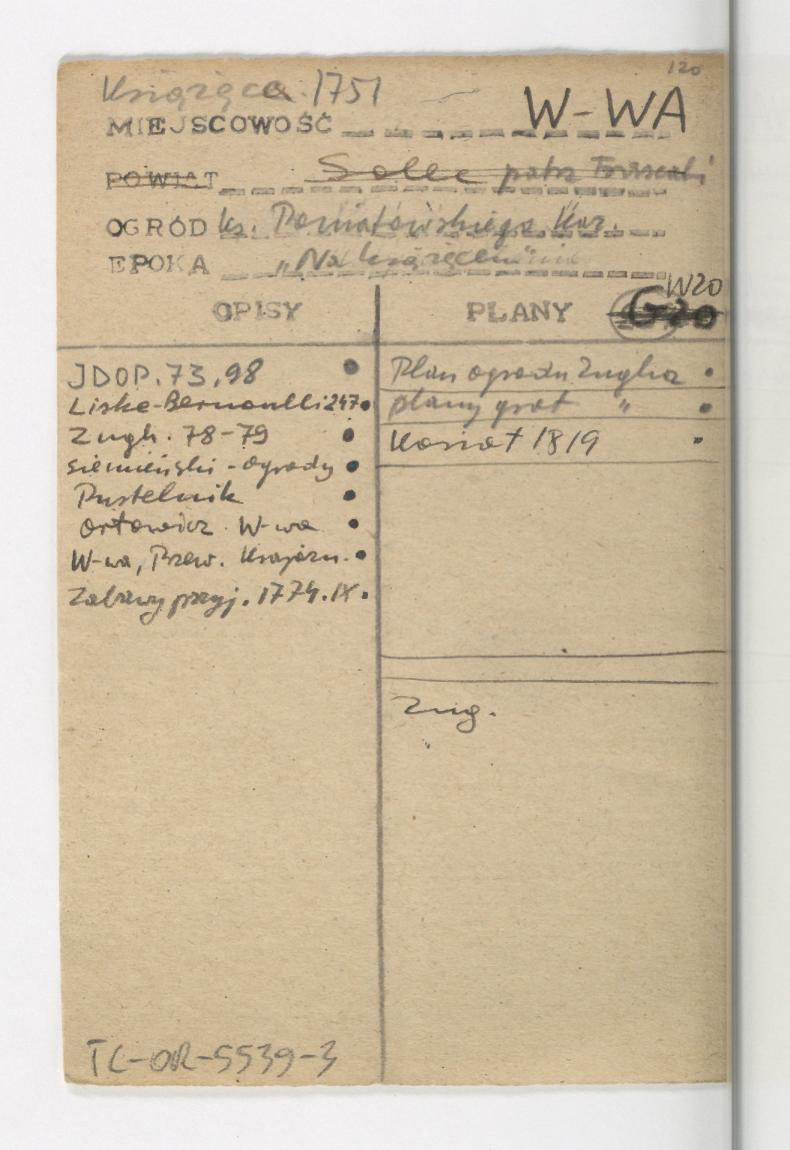 120
Książęca 1751
MIEJSCOWOŚĆ W-WA
POWIAT Solec patrz Frascati
OGRÓD ks. Poniatowskiego Kaz.
EPOKA „Na książęcem"
W20
OPISY PLANY G20
JDOP. 73, 98
Liske-Bernoulli 247
Zugh. 78-79
Siemieński - Ogrody
Pustelnik
Ortowicz W-wa
W-wa, Przew. Krajozn.
Zabawy przyj. 1774. IX.
Plan ogrodu Zugha
plany grot "
Koriot 1819
Zug.
TC-OR-5539-3